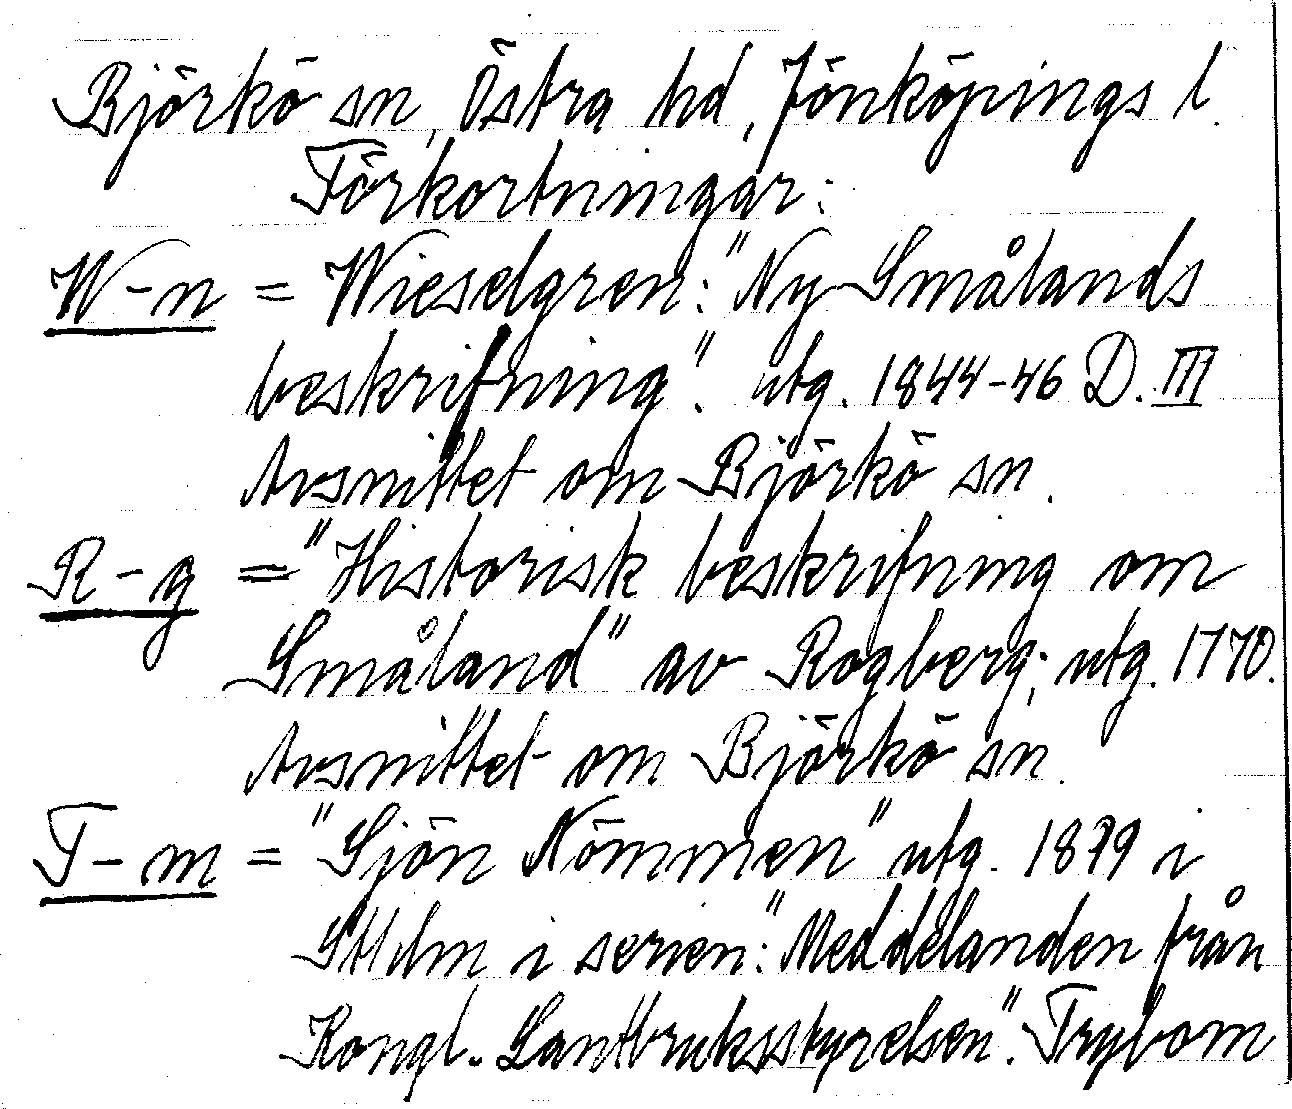 Björkö sn, Östra hd, Jönköpings l.
Förkortningar:
W-n = Wieselgren: "Ny Smålands
beskrifning". utg. 1844-46 D. III
Avsnittet om Björkö sn.
R-g = "Historisk beskrifning om
Småland" av Rogberg; utg. 1770.
Avsnittet om Björkö sn.
T-m = "Sjön Nömmen" utg. 1899 i
Sthlm i serien: "Meddelanden från
Kongl. Lantbruksstyrelsen". Trybom